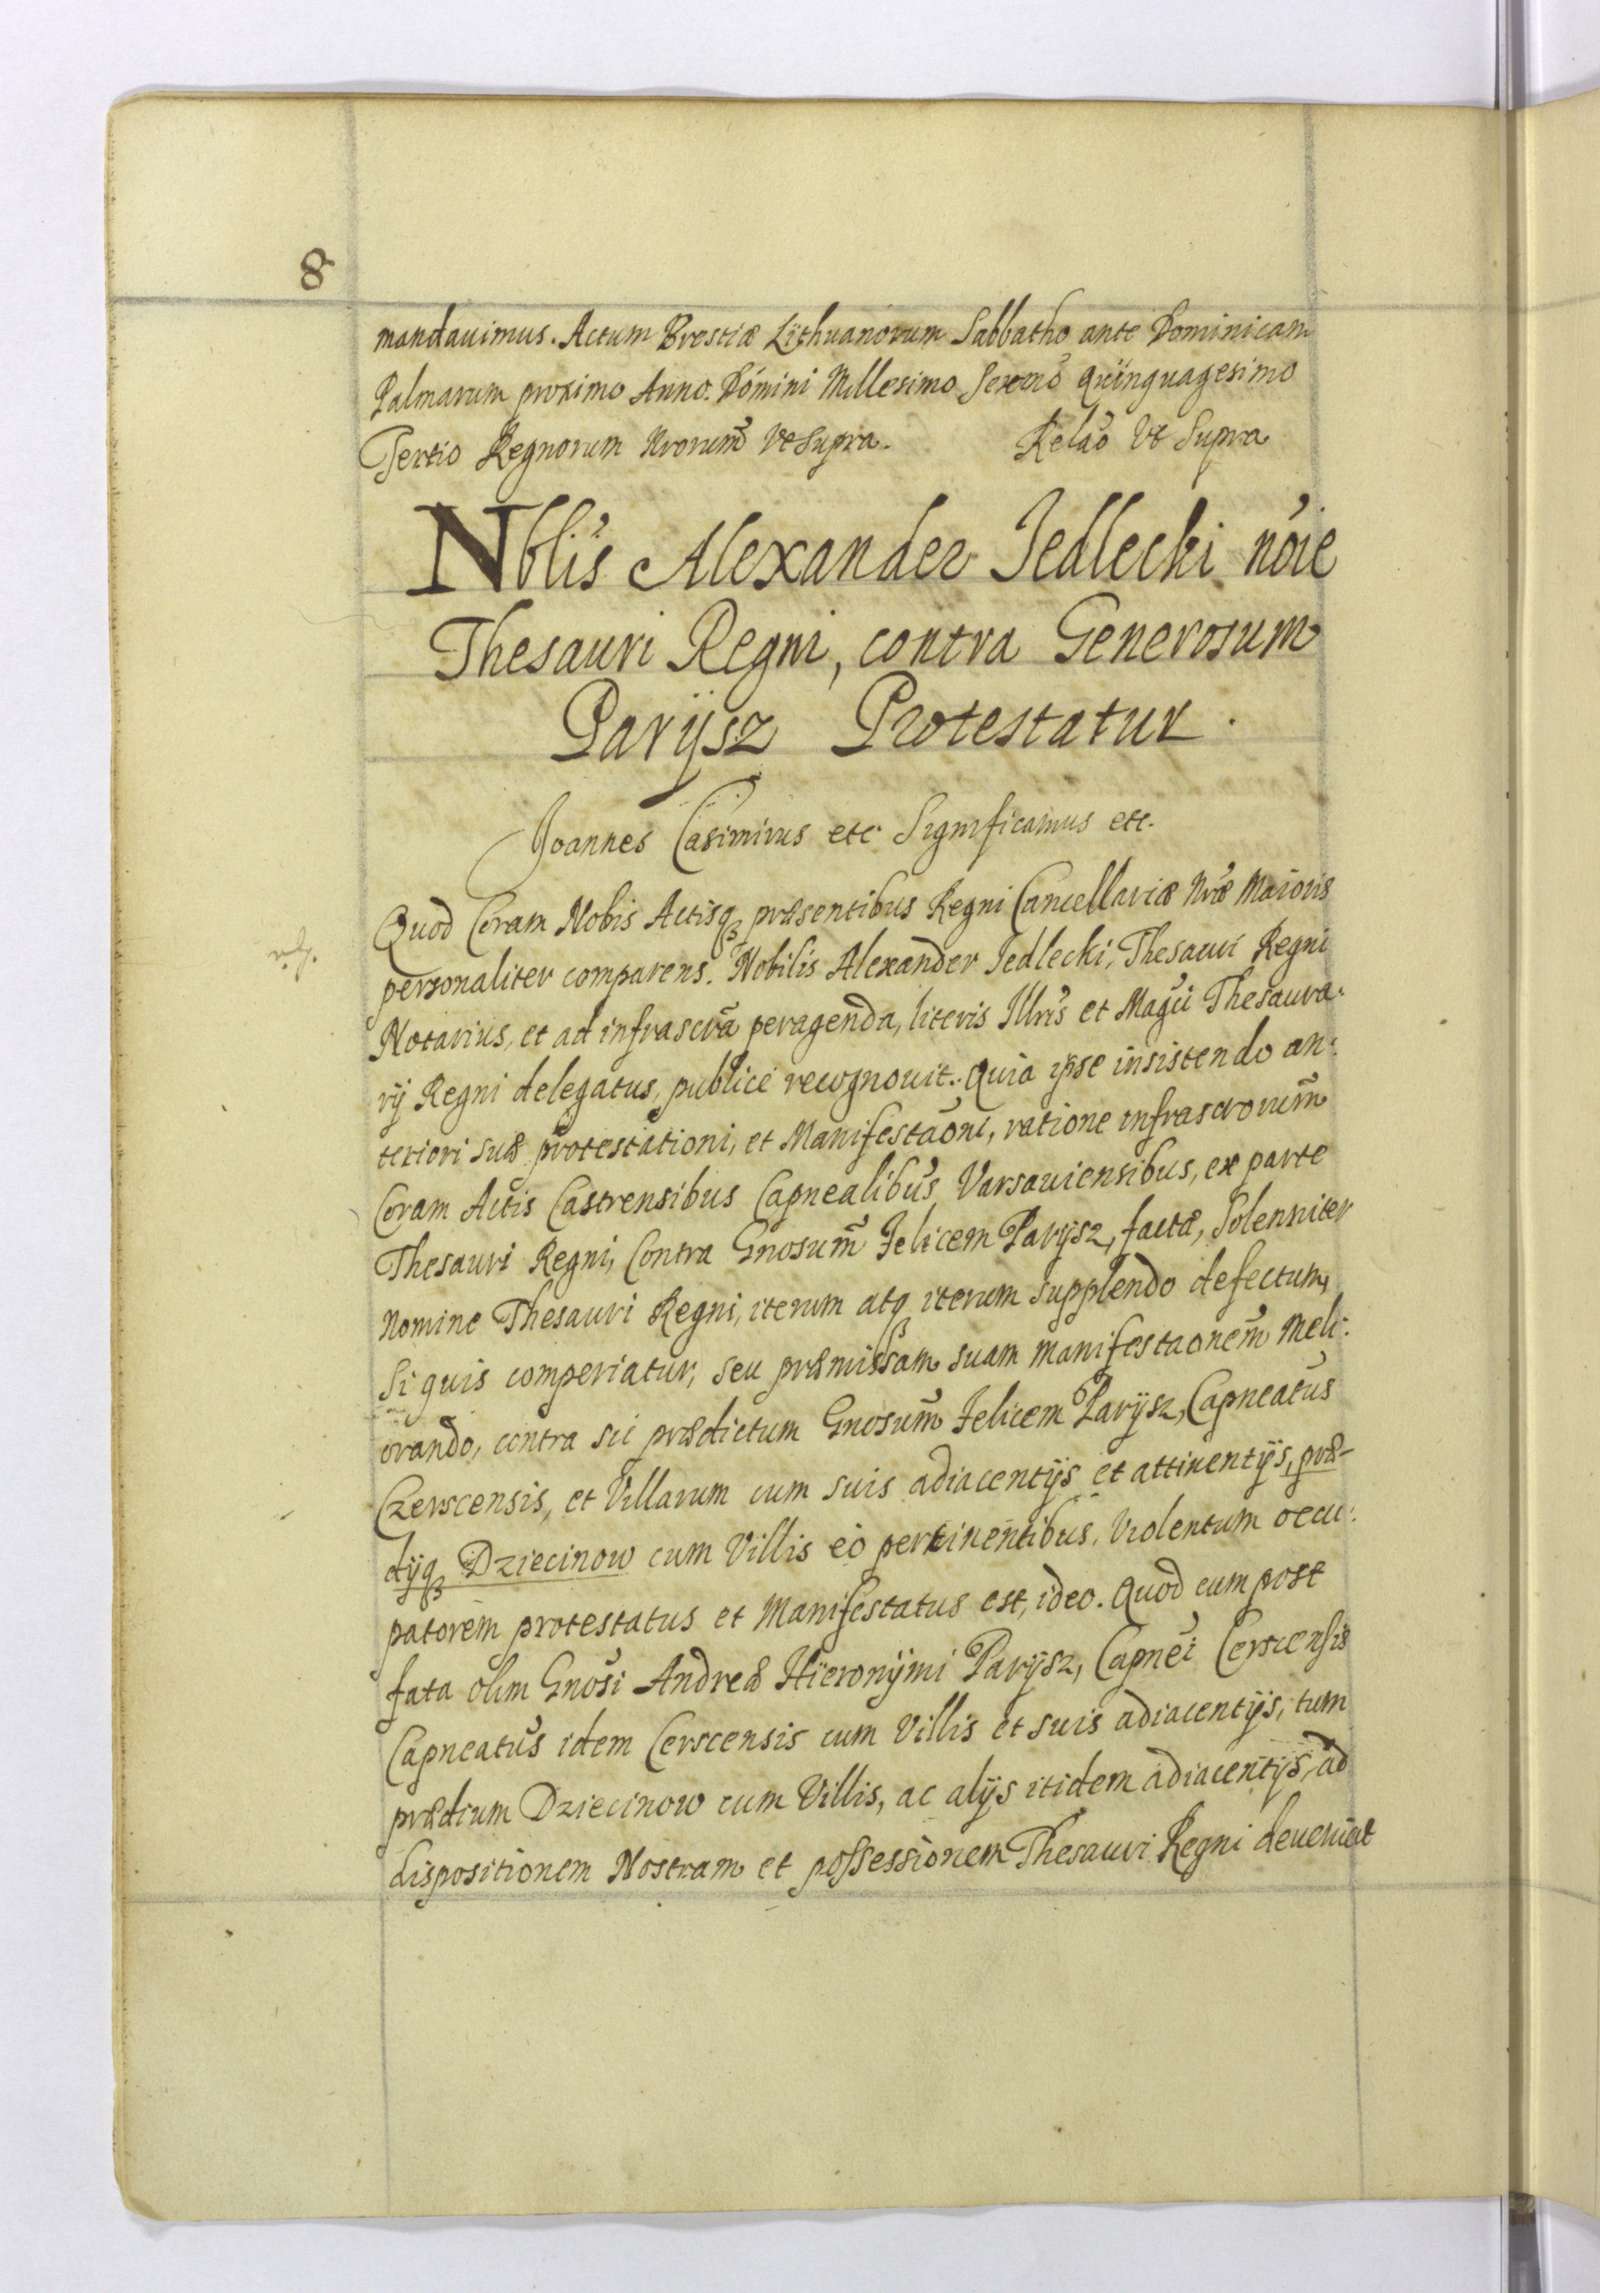 8
mandauimus. Actum Brestiæ Lithuanorum Sabbatho ante Dominicam
Palmarum proximo Anno. Domini Millesimo Sexcō Quinquagesimo
Tertio Regnorum Nrorum̃ Vt Supra. Relaō Vt Supra
Nblis Alexander Jedlecki nōie
Thesauri Regni, contra Generosum
Parÿsz Protestatur.
Joannes Casimirus etc Significamus etc.
Quod Coram Nobis Actisq præsentibus Regni Cancellariæ Nræ Maioris
personaliter comparens. Nobilis Alexander Jedlecki, Thesauri Regni
Notarius, et ad infrascrã peragenda, literis Illris et Magci Thesaura:
rÿ Regni delegatus, publice recognouit. Quia ipse insistendo an:
teriori suæ protestationi, et Manifestaōni, ratione infrascrorum̃
Coram Actis Castrensibus Capnealibus Varsauiensibus, ex parte
Thesauri Regni, Contra Gnosum̃ Felicem Parÿsz, factæ, Solenniter
Nomine Thesauri Regni, iterum atq iterum supplendo defectum,
Si quis comperiatur, seu præmissam suam manifestaonem̃ Meli:
orando, contra sic prædictum Gnosum̃ Felicem Parÿsz, Capneatus
Czerscensis, et Villarum cum suis adiacentÿs et attinentÿs, præ-
dÿq Dziecinow cum Villis eò pertinentibus, Violentum occu:
patorem protestatus et Manifestatus est, ideo. Quod cum post
fata olim Gnosi Andreæ Hieronÿmi Parÿsz, Capnei Cerscensis
Capneatus idem Cerscensis cum Villis et suis adiacentÿs, tum
prædium Dziecinow cum Villis, ac alÿs itidem adiacentÿs, ad
dispositionem Nostram et possessionem Thesauri Regni deueniat